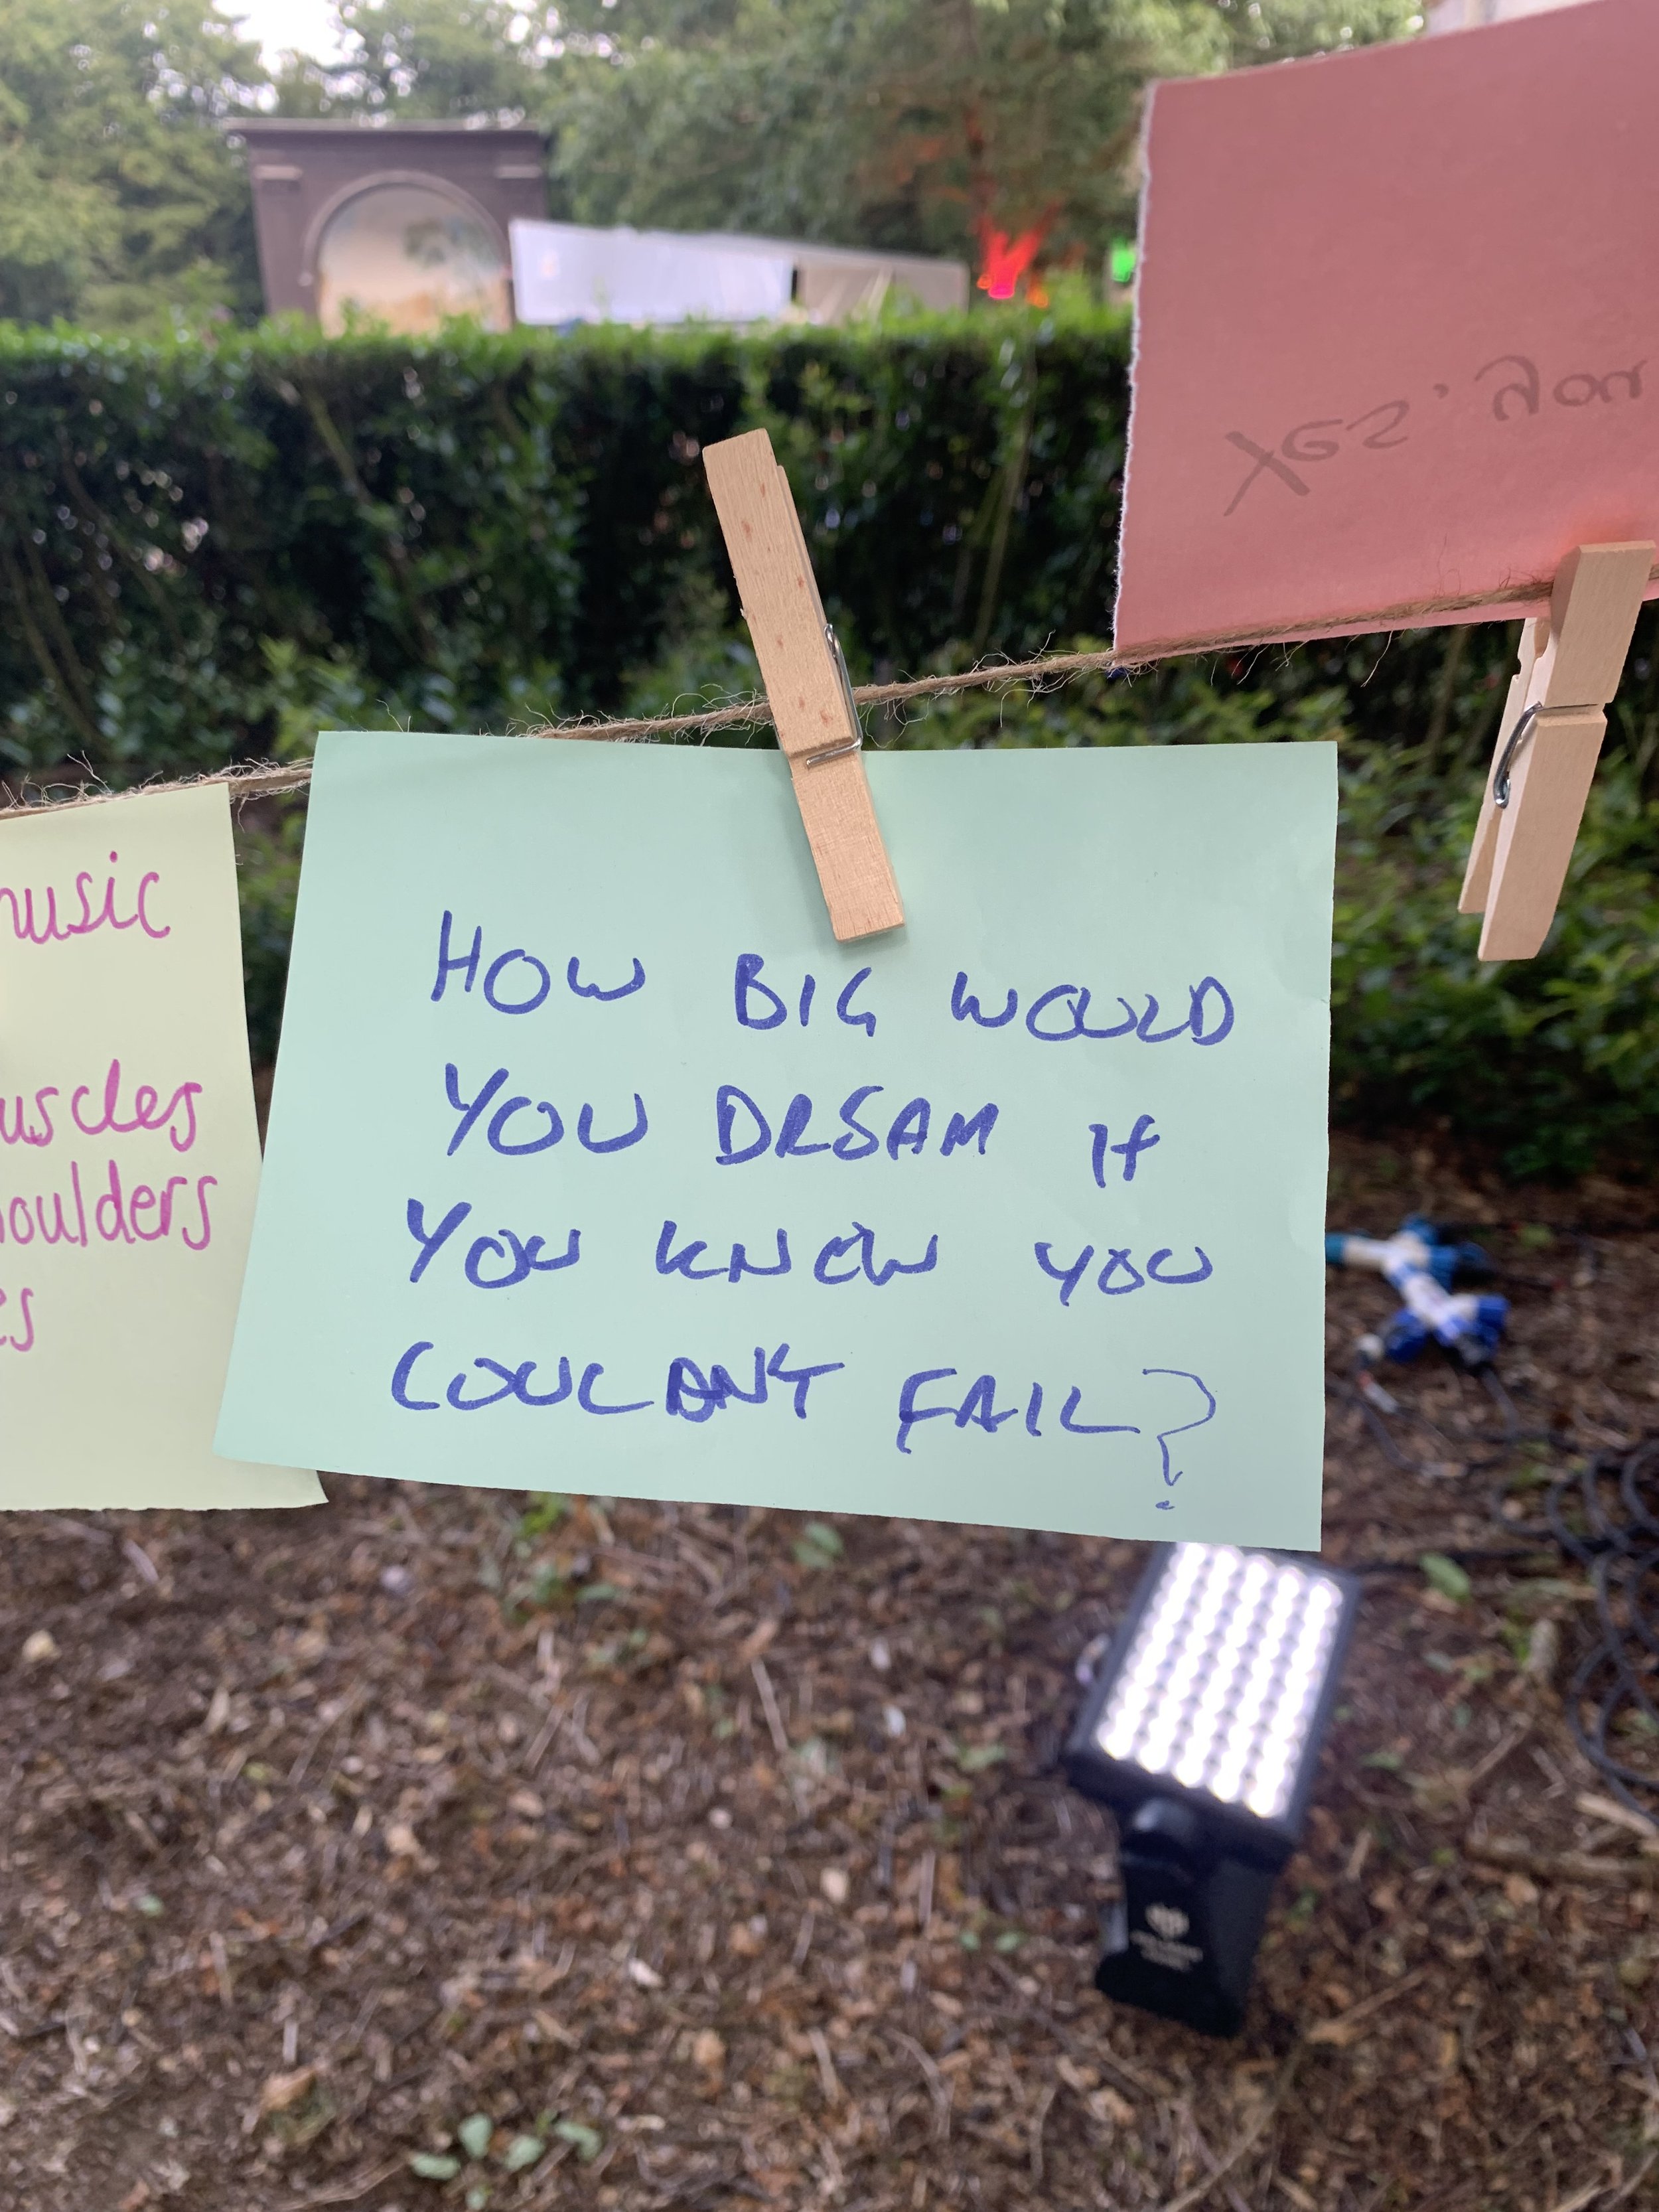 music
uscles
houlders
es
HOW BIG WOULD
YOU DREAM If
YOU KNOW YOU
COULDNT FAIL?